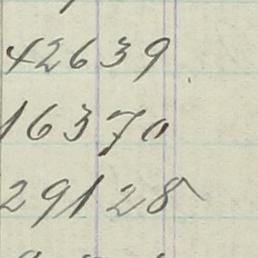 42639
16370
29128